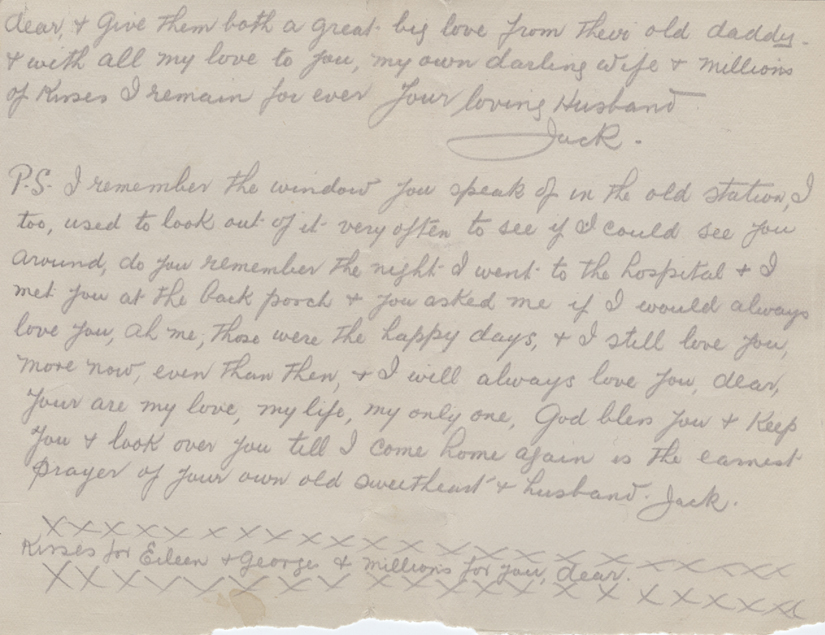 dear, & Give them both a great big love from their old daddy.
& with all my love to you, my own darling wife & millions
of Kisses I remain for ever Your loving Husband
Jack.
P.S. I remember the window you speak of in the old station, I
too, used to look out of it very often to see if I could see you
around, do you remember the night I went to the hospital & I
met you at the back porch & you asked me if I would always
love you, ah me, those were the happy days, & I still love you,
more now, even than then, & I will always love you, dear,
Your are my love, my life, my only one, God bless you & Keep
you & look over you till I come home again is the earnest
prayer of your own old sweetheart & husband. Jack.
X X X X X X X X X X X X X X X X X X X
Kisses for Eileen & Georges & millions for you, dear.
X X X X X X X X X X X X X X X X X X X X